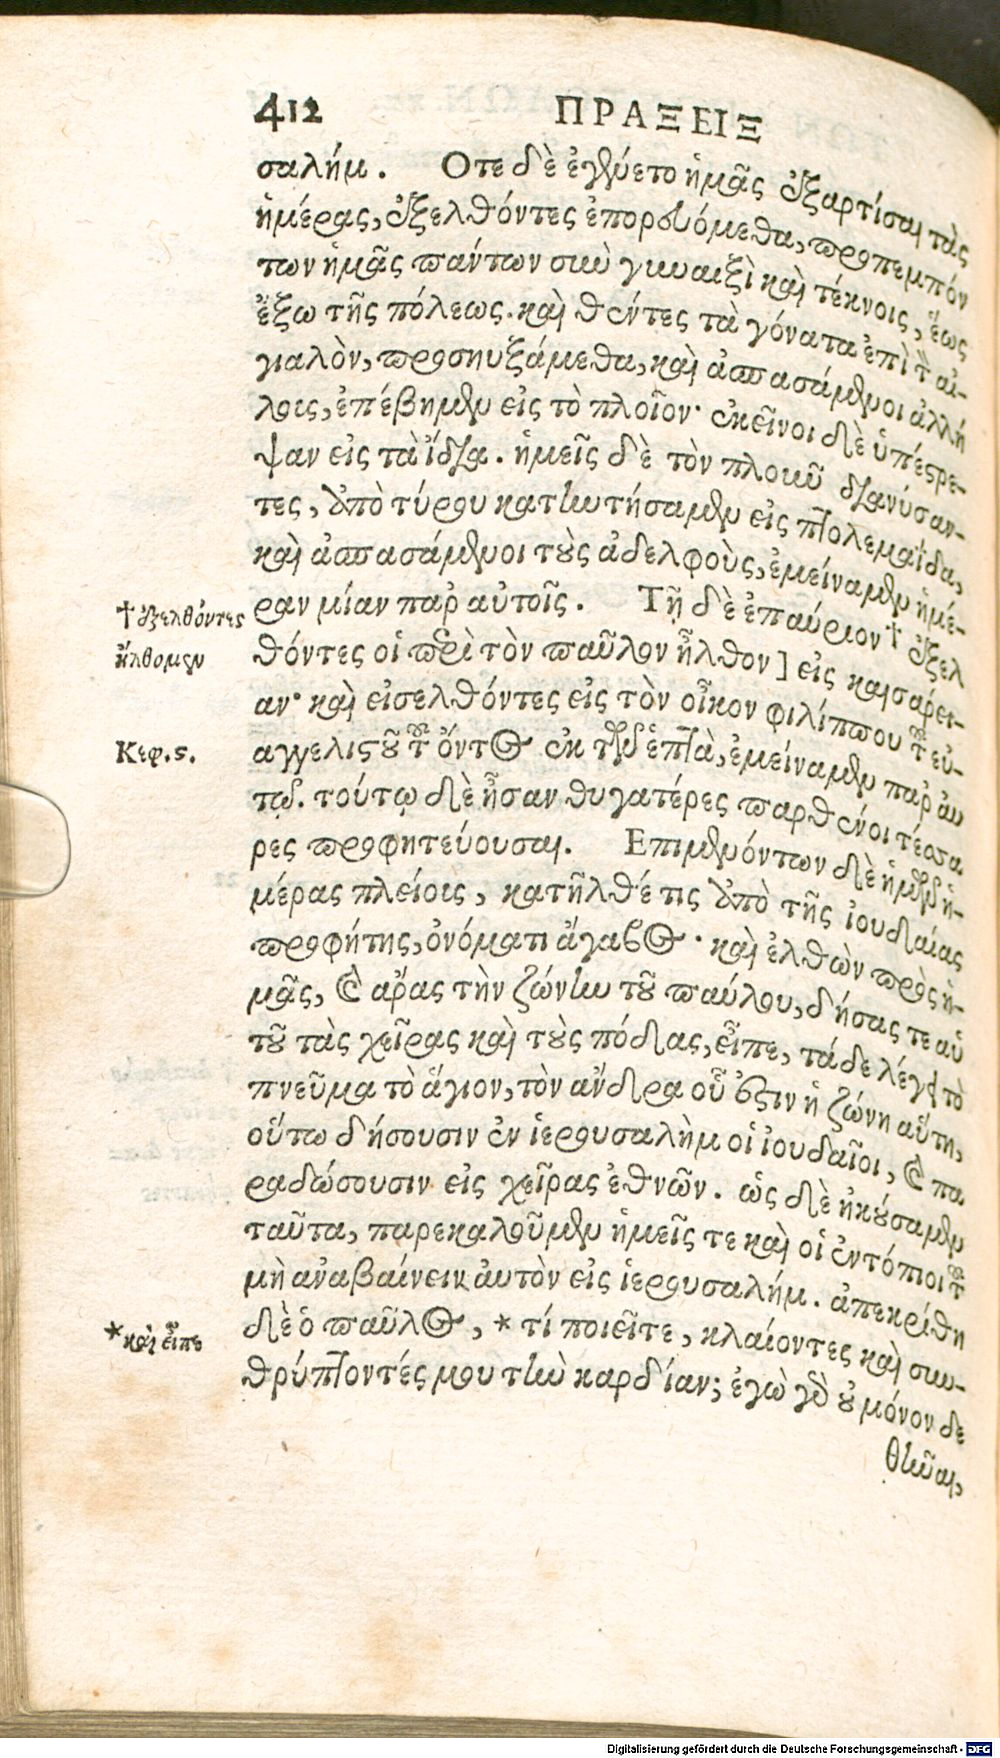 412 ΠΡΑΞΕΙΣ
σαλήμ. Οτε δὲ ἐγένετο ἡμᾶς ἐξαρτίσαι τὰς
ἡμέρας, ἐξελθόντες ἐπορευόμεθα, προπεμπόν
των ἡμᾶς πάντων σὺν γυναιξὶ καὶ τέκνοις, ἕως
ἔξω τῆς πόλεως. καὶ θέντες τὰ γόνατα ἐπὶ τὸν αἰ-
γιαλὸν, προσηυξάμεθα, καὶ ἀσπασάμενοι ἀλλή
λοις, ἐπέβημεν εἰς τὸ πλοῖον· ἐκεῖνοι δὲ ὑπέστρε-
ψαν εἰς τὰ ἴδια. ἡμεῖς δὲ τὸν πλοῦν διανύσαν-
τες, ἀπὸ τύρου κατηντήσαμεν εἰς πτολεμαΐδα,
καὶ ἀσπασάμενοι τοὺς ἀδελφοὺς, ἐμείναμεν ἡμέ-
ραν μίαν παρ αὐτοῖς. Τῇ δὲ ἐπαύριον † ἐξελ
† ἐξελθόντες
ἤλθομεν
θόντες οἱ περὶ τὸν παῦλον ἦλθον] εἰς καισάρει-
αν· καὶ εἰσελθόντες εἰς τὸν οἶκον φιλίππου τοῦ εὐ-
αγγελιστοῦ τοῦ ὄντος ἐκ τῶν ἑπτὰ, ἐμείναμεν παρ ἀυ
Κεφ. ς.
τῷ. τούτῳ δὲ ἦσαν θυγατέρες παρθένοι τέσσα
ρες προφητεύουσαι. Επιμενόντων δὲ ἡμῶν ἡ-
μέρας πλείοις, κατῆλθέ τις ἀπὸ τῆς ἰουδαίας
προφήτης, ὀνόματι ἄγαβος· καὶ ἐλθὼν πρὸς ἡ-
μᾶς, καὶ ἄρας τὴν ζώνην τοῦ παύλου, δήσας τε αὑ
τοῦ τὰς χεῖρας καὶ τοὺς πόδας, εἶπε, τάδε λέγει τὸ
πνεῦμα τὸ ἅγιον, τὸν ἄνδρα οὗ ἐστιν ἡ ζώνη αὕτη,
οὕτω δήσουσιν ἐν ἱερουσαλὴμ οἱ ἰουδαῖοι, καὶ πα
ραδώσουσιν εἰς χεῖρας ἐθνῶν. ὡς δὲ ἠκούσαμεν
ταῦτα, παρεκαλοῦμεν ἡμεῖς τε καὶ οἱ ἐντόπιοι τοῦ
μὴ ἀναβαίνειν ἀυτὸν εἰς ἱερουσαλήμ. ἀπεκρίθη
δὲ ὁ παῦλος, * τί ποιεῖτε, κλαίοντες καὶ συν-
* καὶ εἶπε
θρύπτοντές μου τὴν καρδίαν; ἐγὼ γὰρ οὐ μόνον δε
θῆναι,
Digitalisierung gefördert durch die Deutsche Forschungsgemeinschaft - DFG